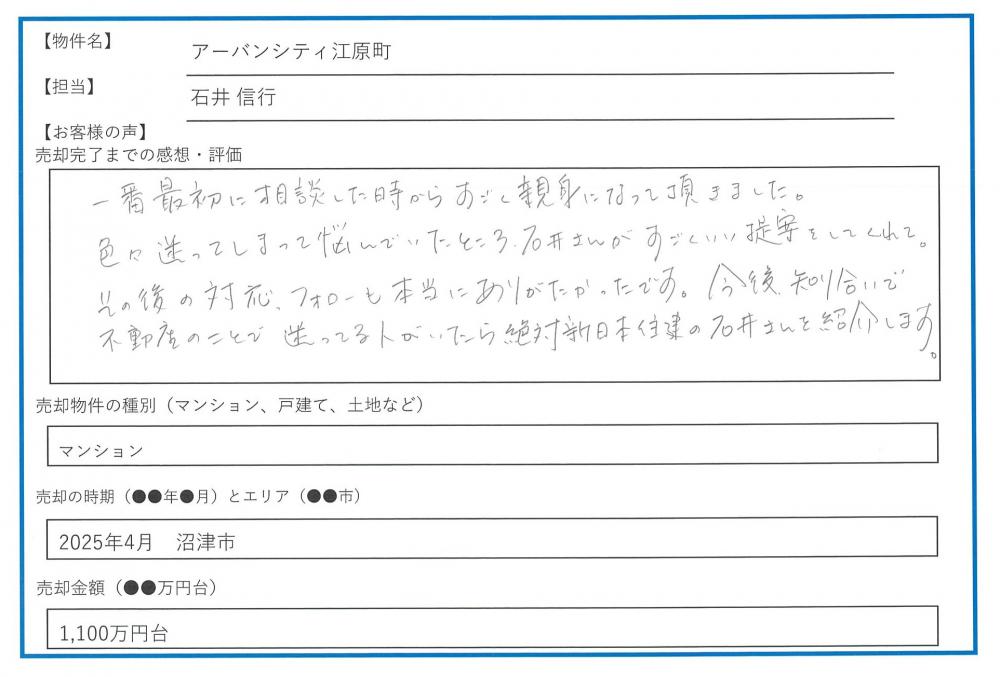 【物件名】
アーバンシティ江原町
【担当】
石井 信行
【お客様の声】
売却完了までの感想・評価
一番最初に相談した時からすごく親身になって頂きました。
色々迷ってしまって悩んでいたところ、石井さんがすごくいい提案をしてくれて。
その後の対応、フォローも本当にありがたかったです。今後、知り合いで
不動産のことで迷ってる人がいたら絶対新日本住建の石井さんを紹介します。
売却物件の種別（マンション、戸建て、土地など）
マンション
売却の時期（●●年●月）とエリア（●●市）
2025年4月　沼津市
売却金額（●●万円台）
1,100万円台